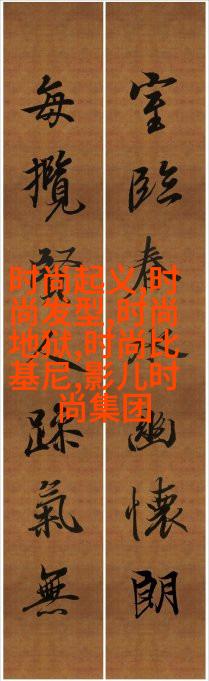 室臨春水幽懷朗
每攬賢氣無
时尚起义,时
尚发型,时尚
地狱,时尚比
基尼,影儿时
尚集团